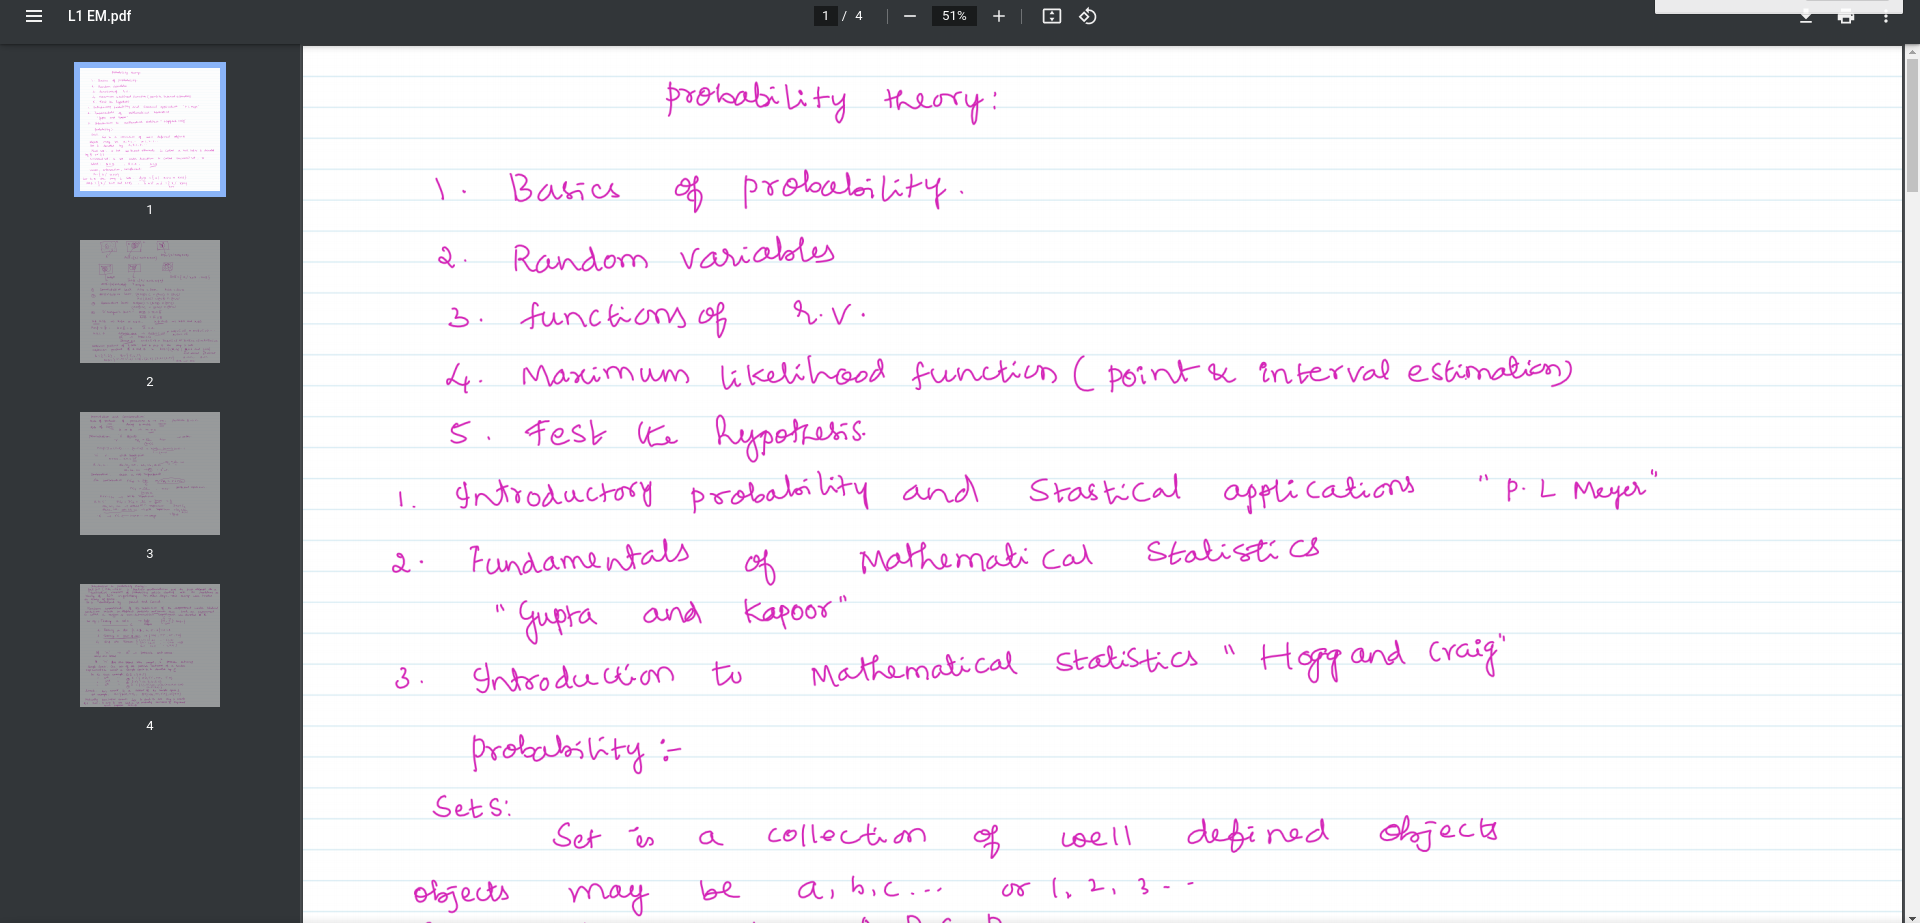 L1 EM.pdf
1 / 4
51%
1
2
3
4
probability theory:
1. Basics of probability.
2. Random variables
3. functions of r.v.
4. Maximum likelihood function ( point & interval estimation)
5. Test the hypothesis.
1. Introductory probability and Stastical applications "P. L Meyer"
2. Fundamentals of Mathematical Statistics
"Gupta and Kapoor"
3. Introduction to Mathematical Statistics "Hogg and Craig"
probability :-
Sets:
Set is a collection of well defined objects
objects may be a, b, c ... or 1, 2, 3 - -